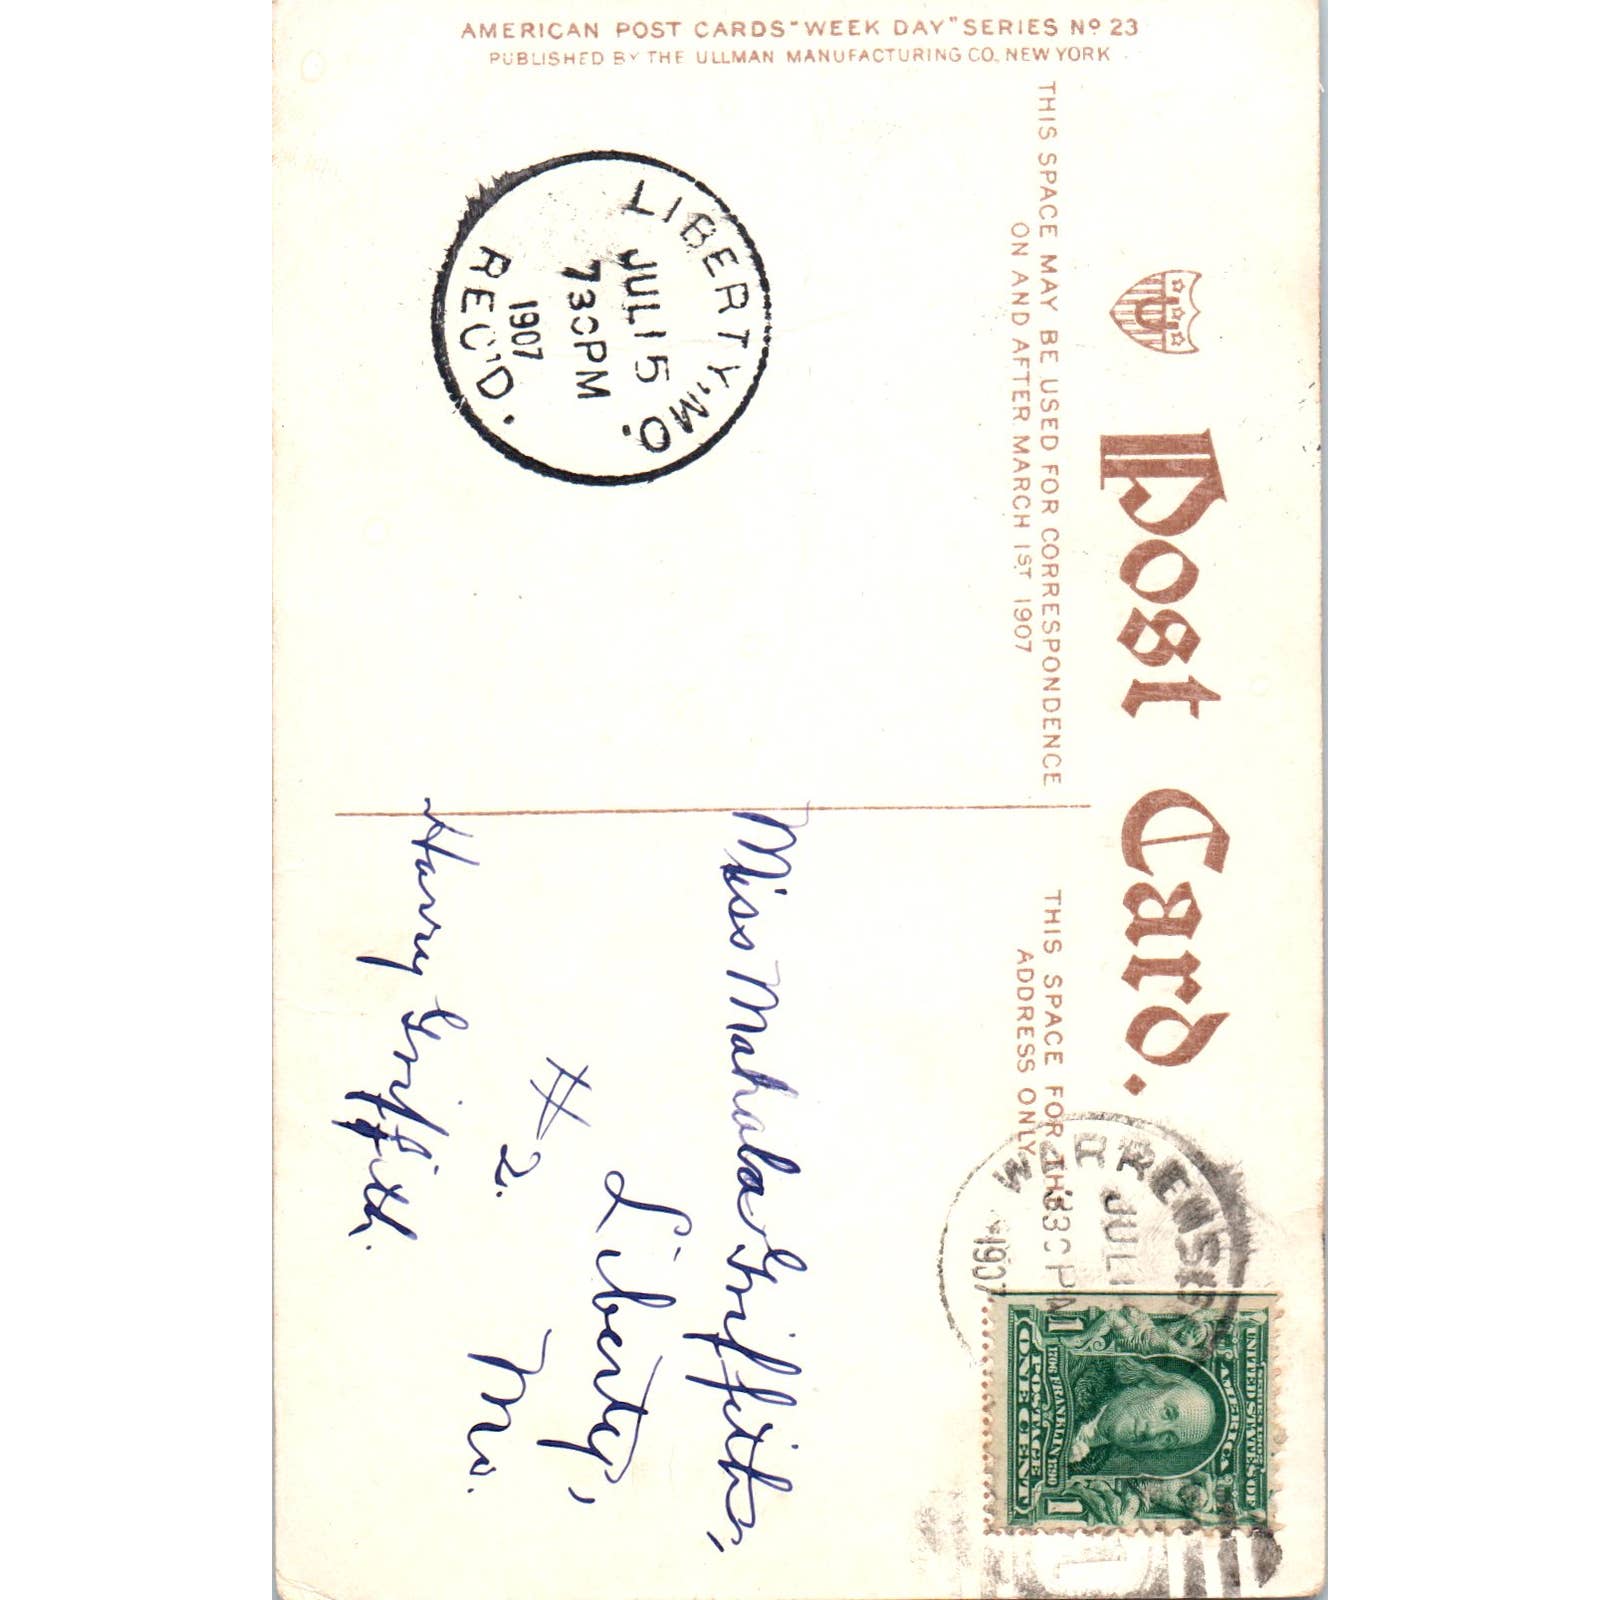 AMERICAN POST CARDS "WEEK DAY" SERIES Nº 23
PUBLISHED BY THE ULLMAN MANUFACTURING CO. NEW YORK
Post Card.
THIS SPACE MAY BE USED FOR CORRESPONDENCE
ON AND AFTER MARCH 1ST 1907
THIS SPACE FOR THE
ADDRESS ONLY
LIBERTY, MO.
JUL 15
730PM
1907
REC'D.
WARRENSB
JUL 1
830 PM
1907
UNITED STATES OF
AMERICA
1706 FRANKLIN 1790
1 POSTAGE 1
ONE CENT
U
Miss Mahala Griffith,
Liberty,
Mo.
#2.
Harry Griffith.